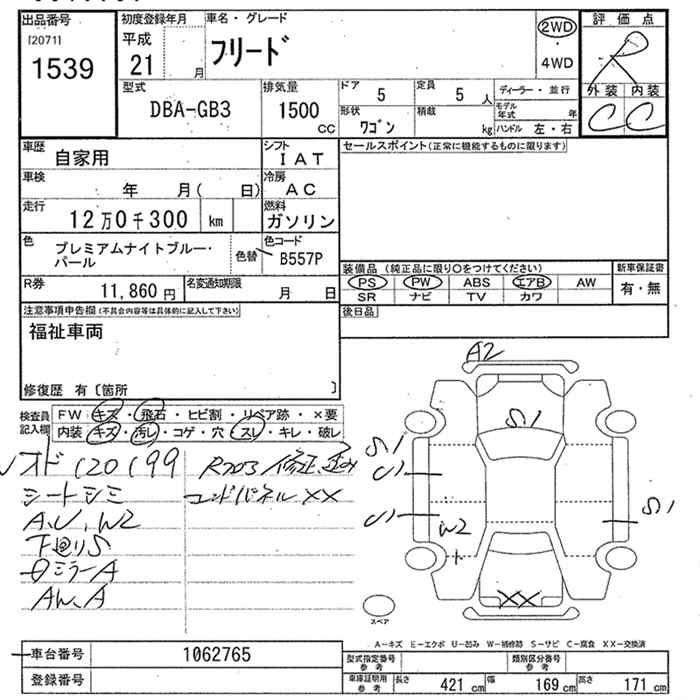 出品番号
[2071]
1539
初度登録年月
平成
21 月
車名・グレード
フリード
2WD
・
4WD
評価点
R
外装 内装
C C
型式
DBA-GB3
排気量
1500
CC
ドア
5
定員
5 人
形状
ワゴン
積載
kg
ディーラー・並行
モデル年式 年
ハンドル 左・右
車歴
自家用
シフト
IAT
車検
年 月( 日)
冷房
AC
走行
12万0千300 km
燃料
ガソリン
色
プレミアムナイトブルー・
パール
色替
色コード
B557P
R券
11,860 円
名変通知期限
月 日
セールスポイント(正常に機能するものに限ります)
装備品 (純正品に限り○をつけてください)
PS PW ABS エアB AW
SR ナビ TV カワ
新車保証書
有・無
後日品
注意事項申告欄(不具合内容等は具体的に記入して下さい)
福祉車両
修復歴 有〔箇所 〕
検査員
記入欄
FW キズ・飛石・ヒビ割・リペア跡・×要
内装 キズ・汚レ・コゲ・穴・スレ・キレ・破レ
シートシミ
A,U,W2
下回りS
ミラーA
AW,A
XX
A2
S1
S1
U1
U1
W2
S1
XX
スペア
A-キズ E-エクボ U-凹み W-補修跡 S-サビ C-腐食 XX-交換済
車台番号
1062765
登録番号
型式指定番号
参考
類別区分番号
参考
車庫証明用
参考
長さ 421 cm 幅 169 cm 高さ 171 cm